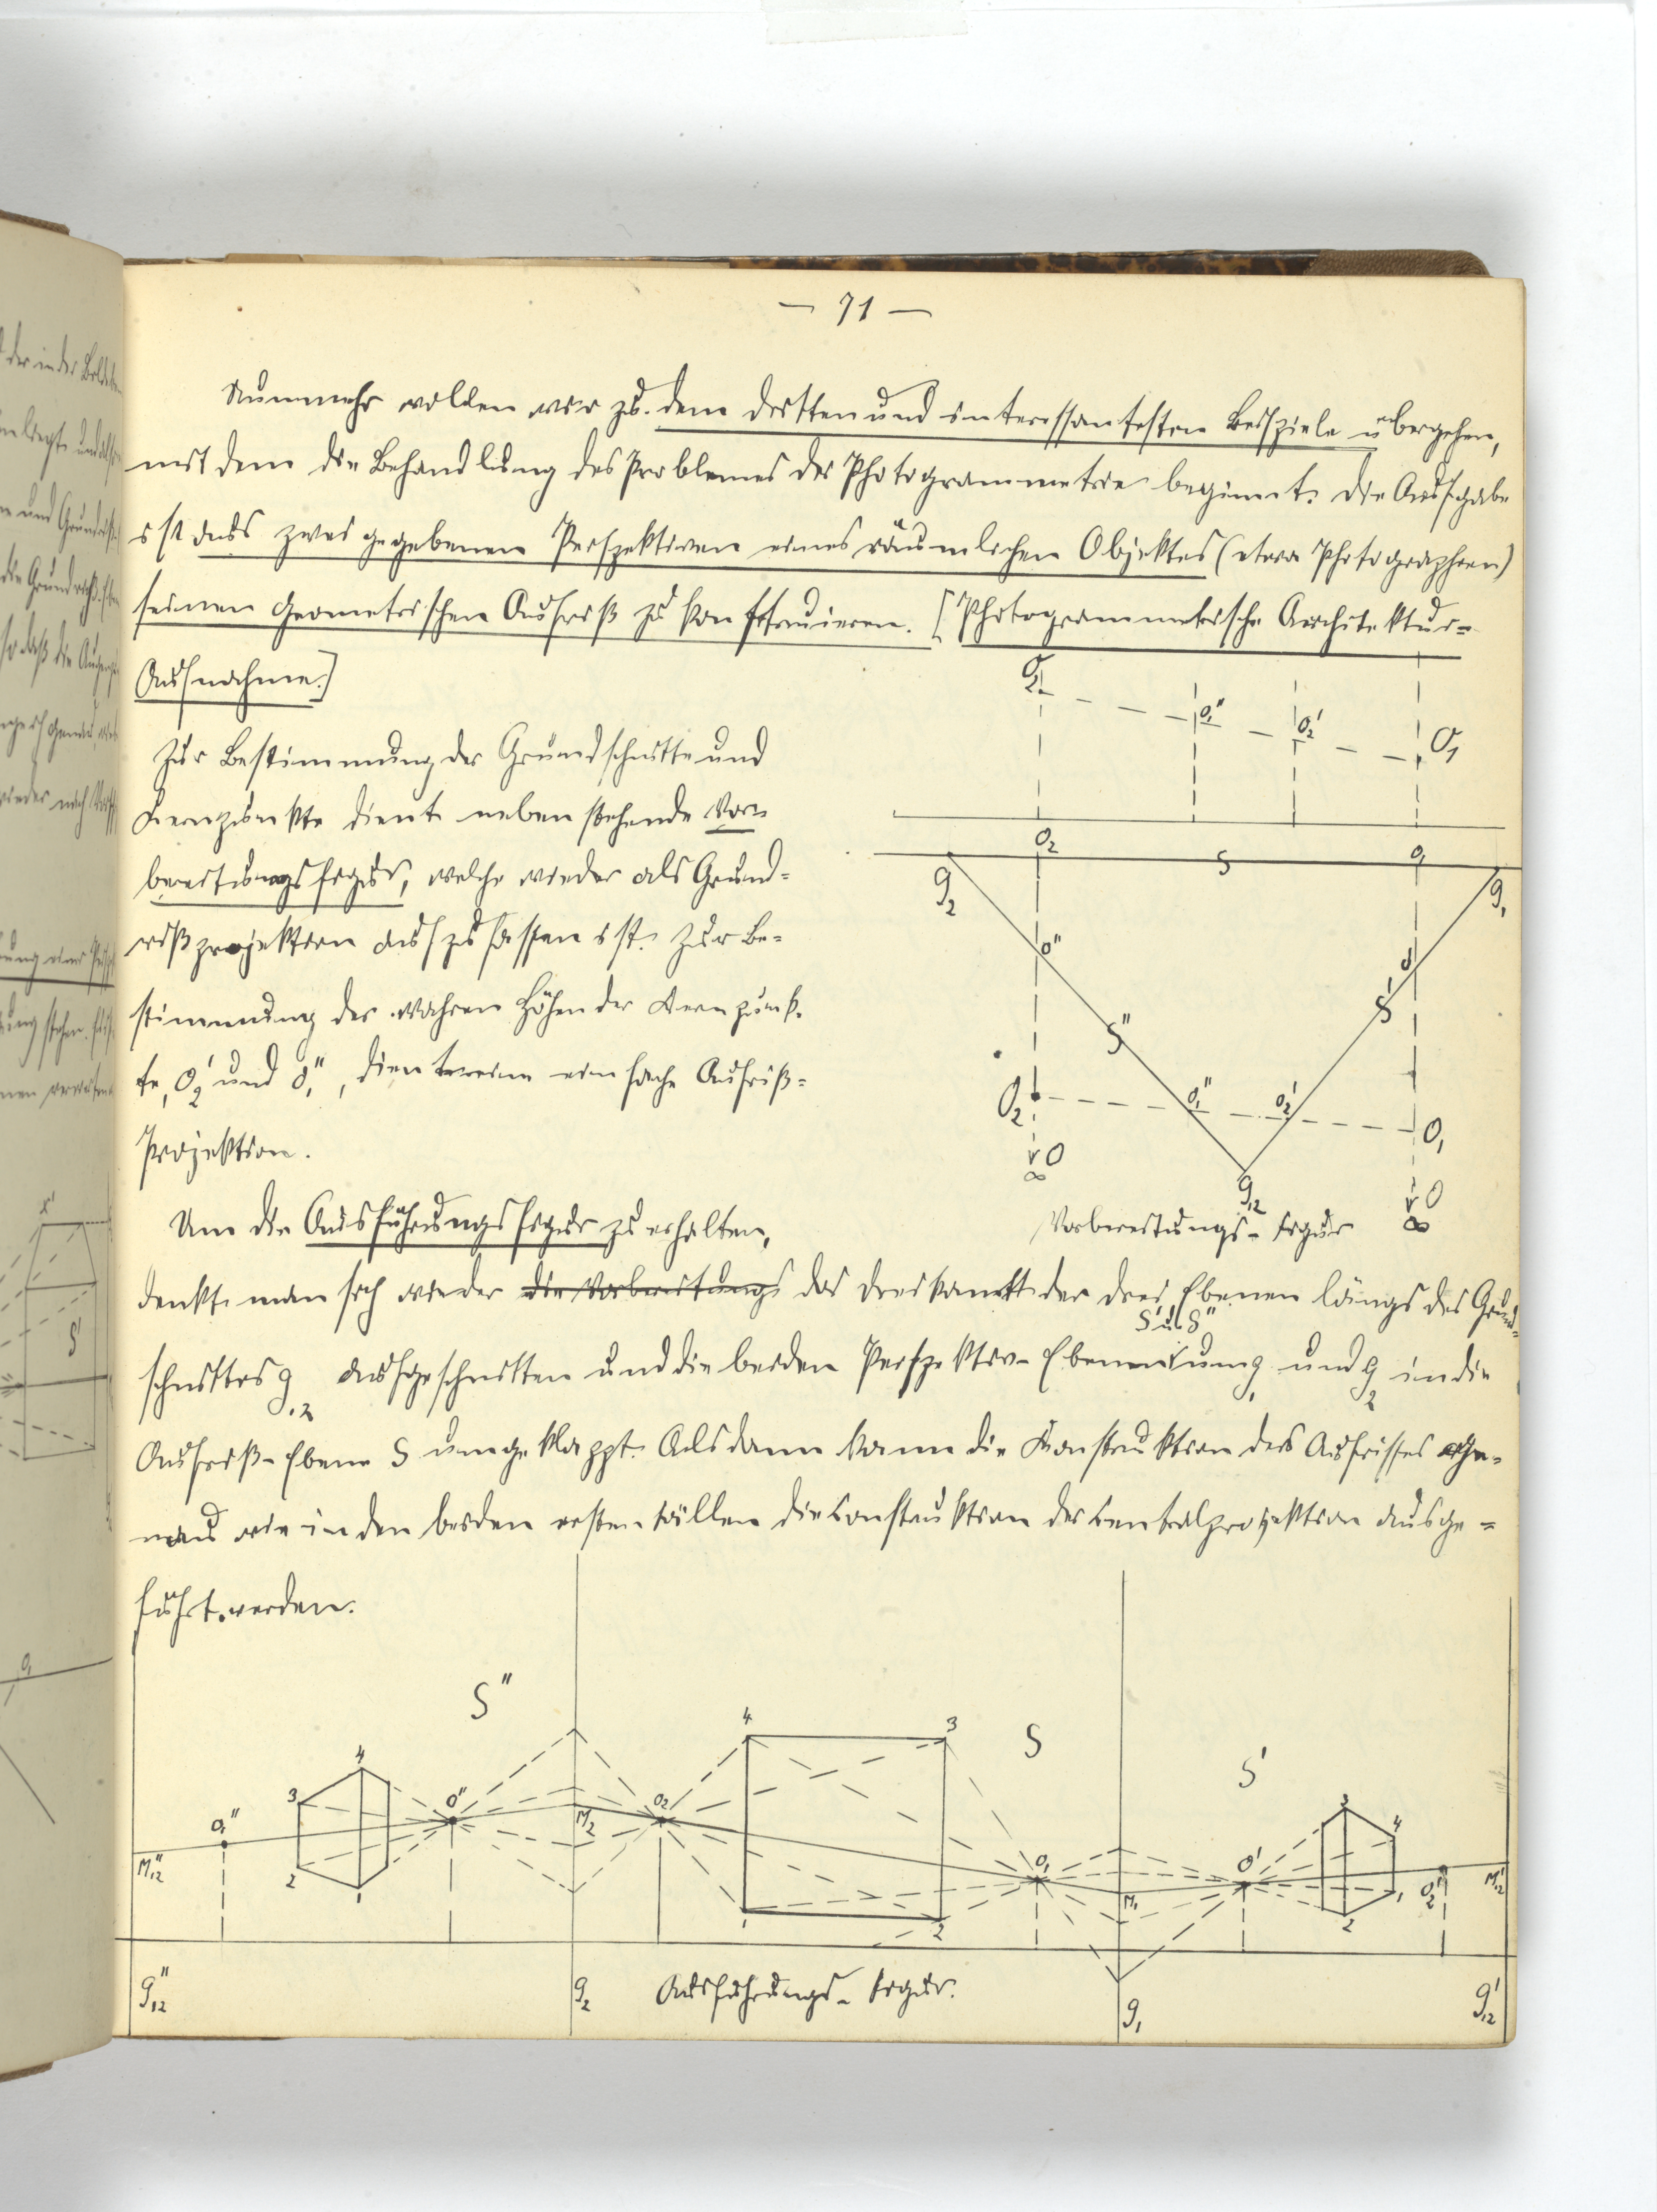 — 71 —
Nunmehr wollen wir zu dem dritten und interessantesten Beispiele übergehen,
mit dem die Behandlung des Problemes der Photogrammetrie beginnt. Die Aufgabe
ist aus zwei gegebenen Perspektiven eines räumlichen Objektes (etwa Photographien)
seinen geometrischen Aufriß zu konstruieren. [Photogrammetrische Architektur-
Aufnahme.]
Zur Bestimmung der Grundschnitte und
Kernpunkte dient nebenstehende Vor-
bereitungsfigur, welche wieder als Grund-
rißprojektion aufzufassen ist. Zur Be-
stimmung der wahren Höhen der Kernpunk-
te, O₂' und O₁'', dient eine einfache Aufriß-
Projektion.
O₂ O₁'' O₂' O₁
O₂ S O₁
g₂ g₁
O'' O'
S'' S'
O₂ O₁'' O₂' O₁
O ∞ g₁₂ O ∞
Vorbereitungs-Figur
Um die Ausführungsfigur zu erhalten,
denkt man sich wieder die Vorbereitungs das Dreikant der drei Ebenen längs des Grund-
S' u. S''
schnittes g₁₂ aufgeschnitten und die beiden Perspektiv-Ebenen um g₁ und g₂ in die
Aufriß-Ebene S umgeklappt. Alsdann kann die Konstruktion des Aufrisses ge-
nau wie in den beiden ersten Fällen die Konstruktion der Centralprojektion ausge-
führt werden.
S'' S S'
4 3 4 3
3 O₁'' O'' M₂ O₂ O₁ O' 4
M₁₂'' 2 1 1 2 M₁ 2 1 O₂' M₁₂'
g₁₂'' g₂ Ausführungs-Figur. g₁ g₁₂'